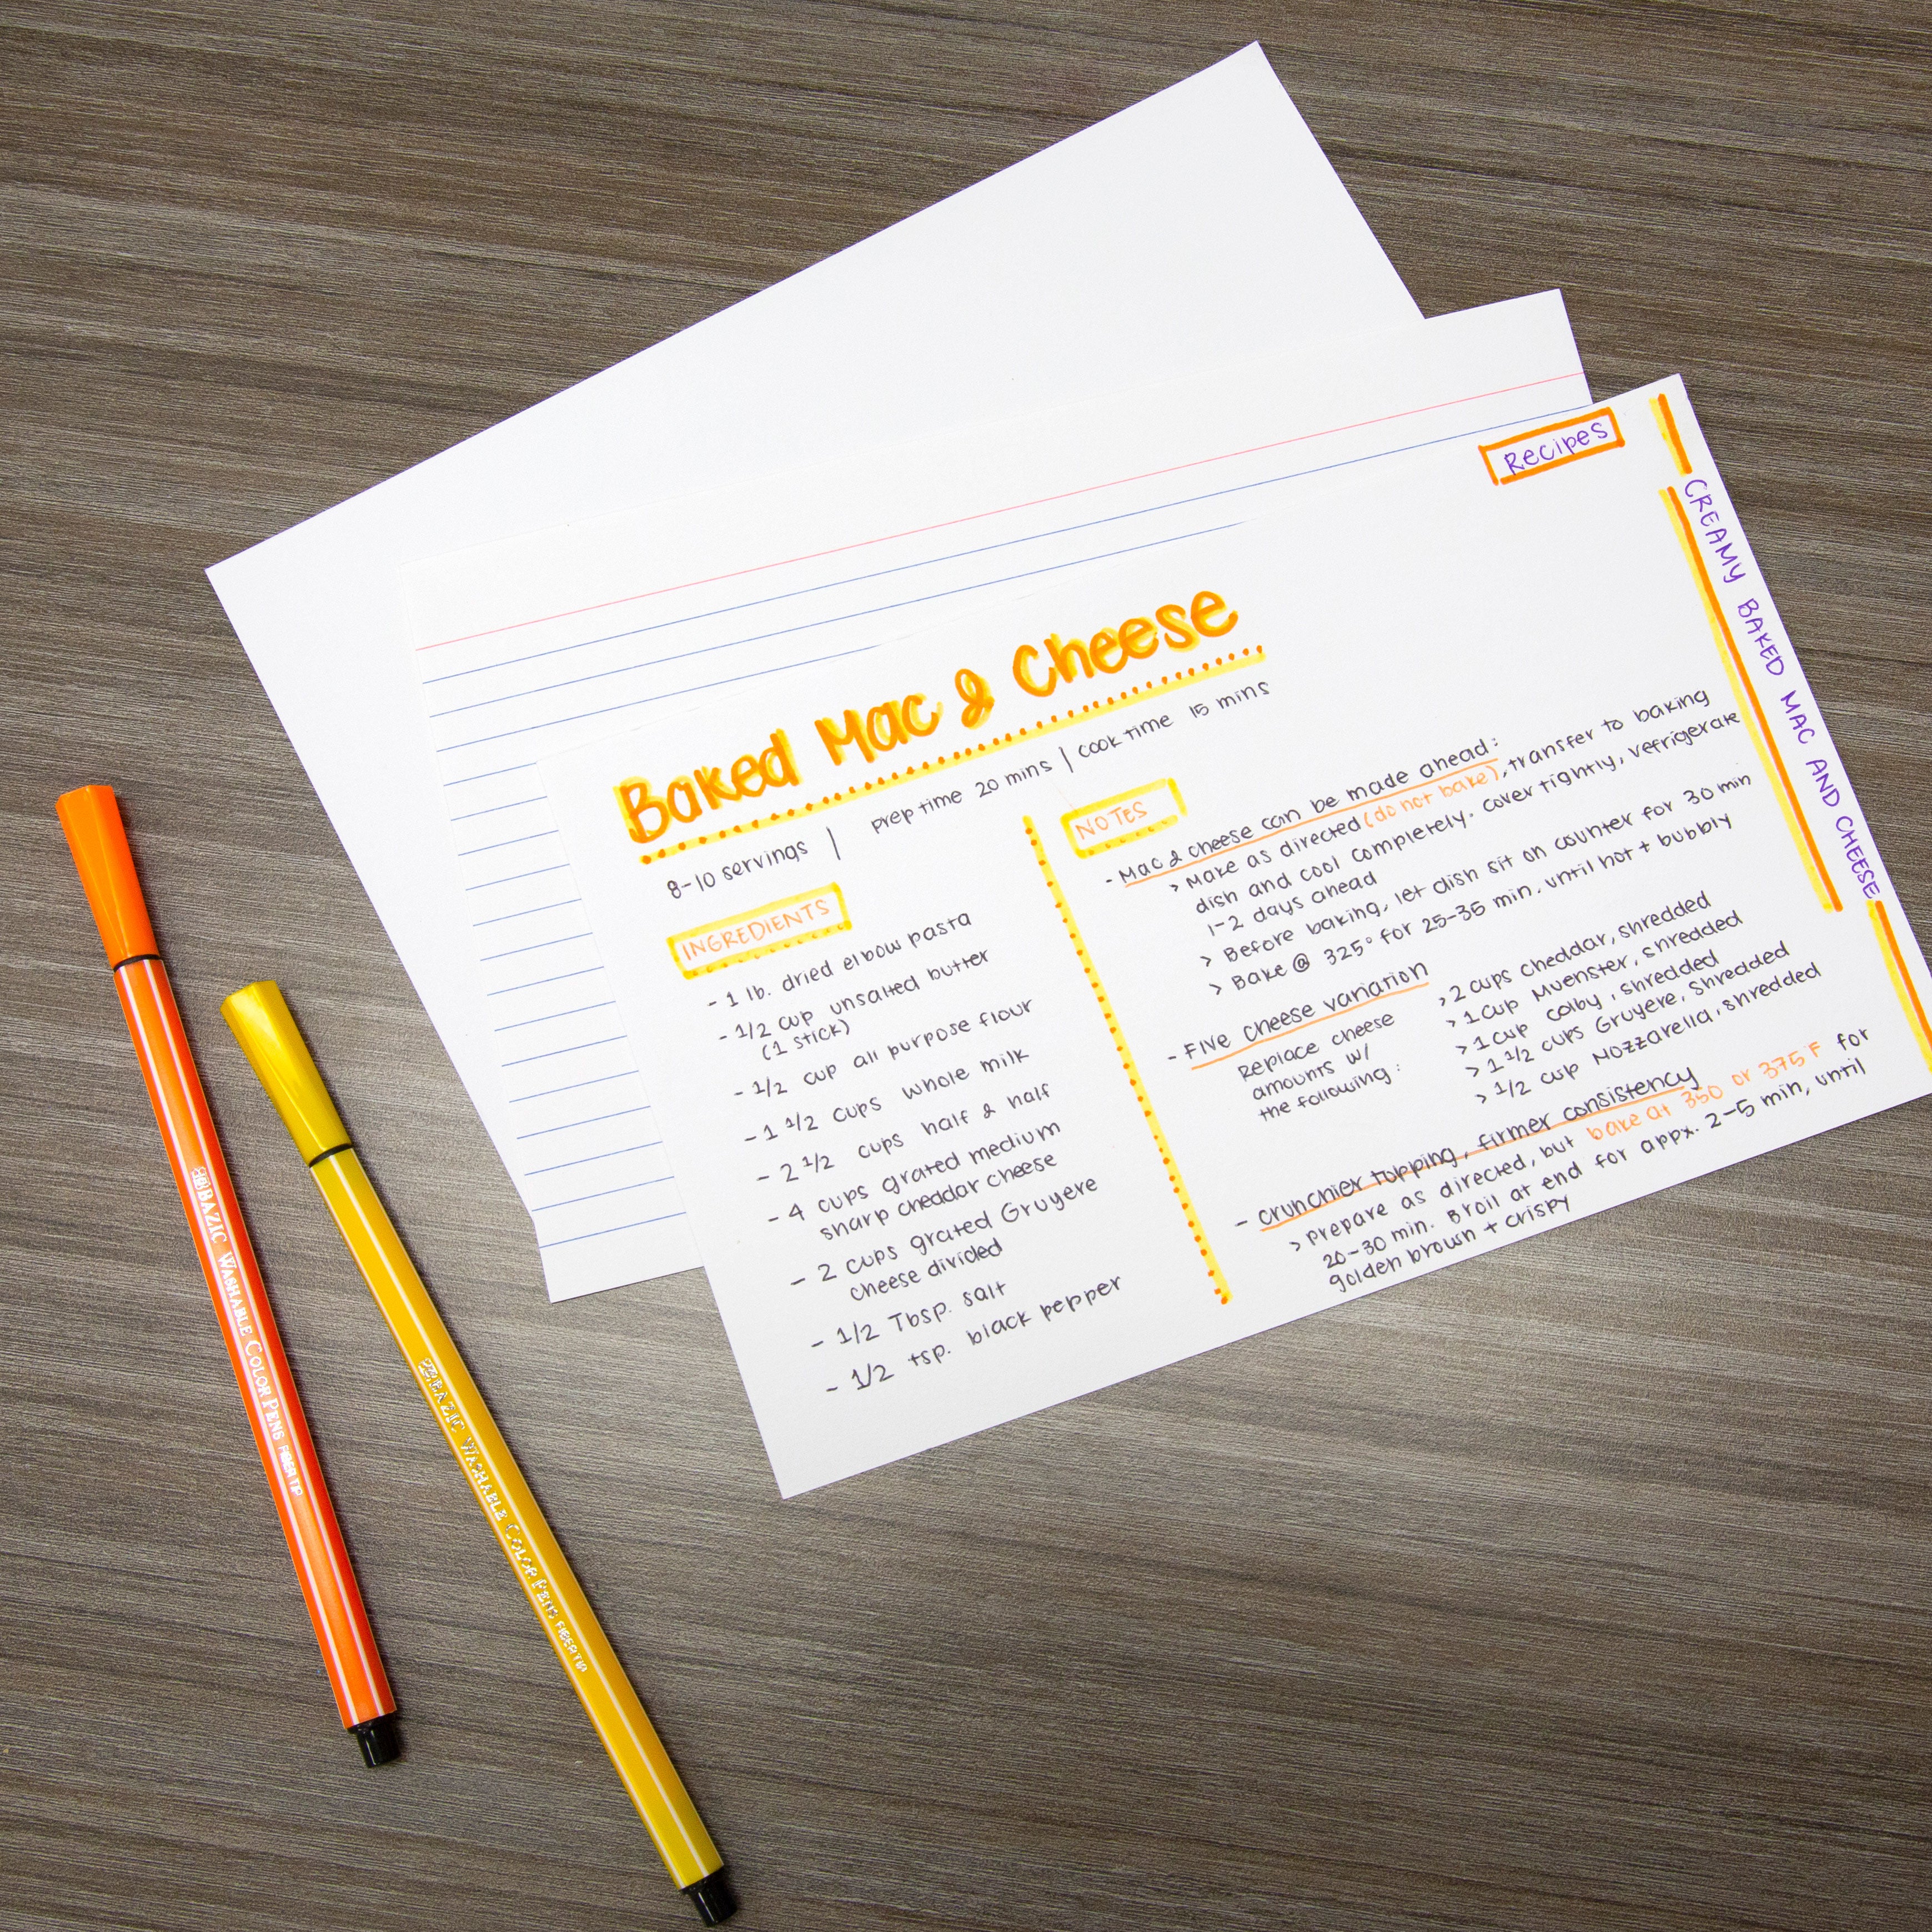 Recipes
Baked Mac & Cheese
8-10 servings | prep time 20 mins | cook time 15 mins
INGREDIENTS
- 1 lb. dried elbow pasta
- 1/2 cup unsalted butter
(1 stick)
- 1/2 cup all purpose flour
- 1 1/2 cups whole milk
- 2 1/2 cups half & half
- 4 cups grated medium
sharp cheddar cheese
- 2 cups grated Gruyere
cheese divided
- 1/2 Tbsp. salt
- 1/2 tsp. black pepper
NOTES
- Mac & cheese can be made ahead:
> Make as directed (do not bake), transfer to baking
dish and cool completely. cover tightly, refrigerate
1-2 days ahead
> Before baking, let dish sit on counter for 30 min
> Bake @ 325° for 25-35 min. until hot + bubbly
- Five cheese variation
Replace cheese
amounts w/
the following:
> 2 cups cheddar, shredded
> 1 cup Muenster, shredded
> 1 cup colby, shredded
> 1 1/2 cups Gruyere, shredded
> 1/2 cup Mozzarella, shredded
- crunchier topping, firmer consistency
> prepare as directed, but bake at 350 or 375 F for
20-30 min. Broil at end for appx. 2-5 min, until
golden brown + crispy
CREAMY BAKED MAC AND CHEESE
BAZIC WASHABLE COLOR PENS FIBER TIP
BAZIC WASHABLE COLOR PENS FIBER TIP